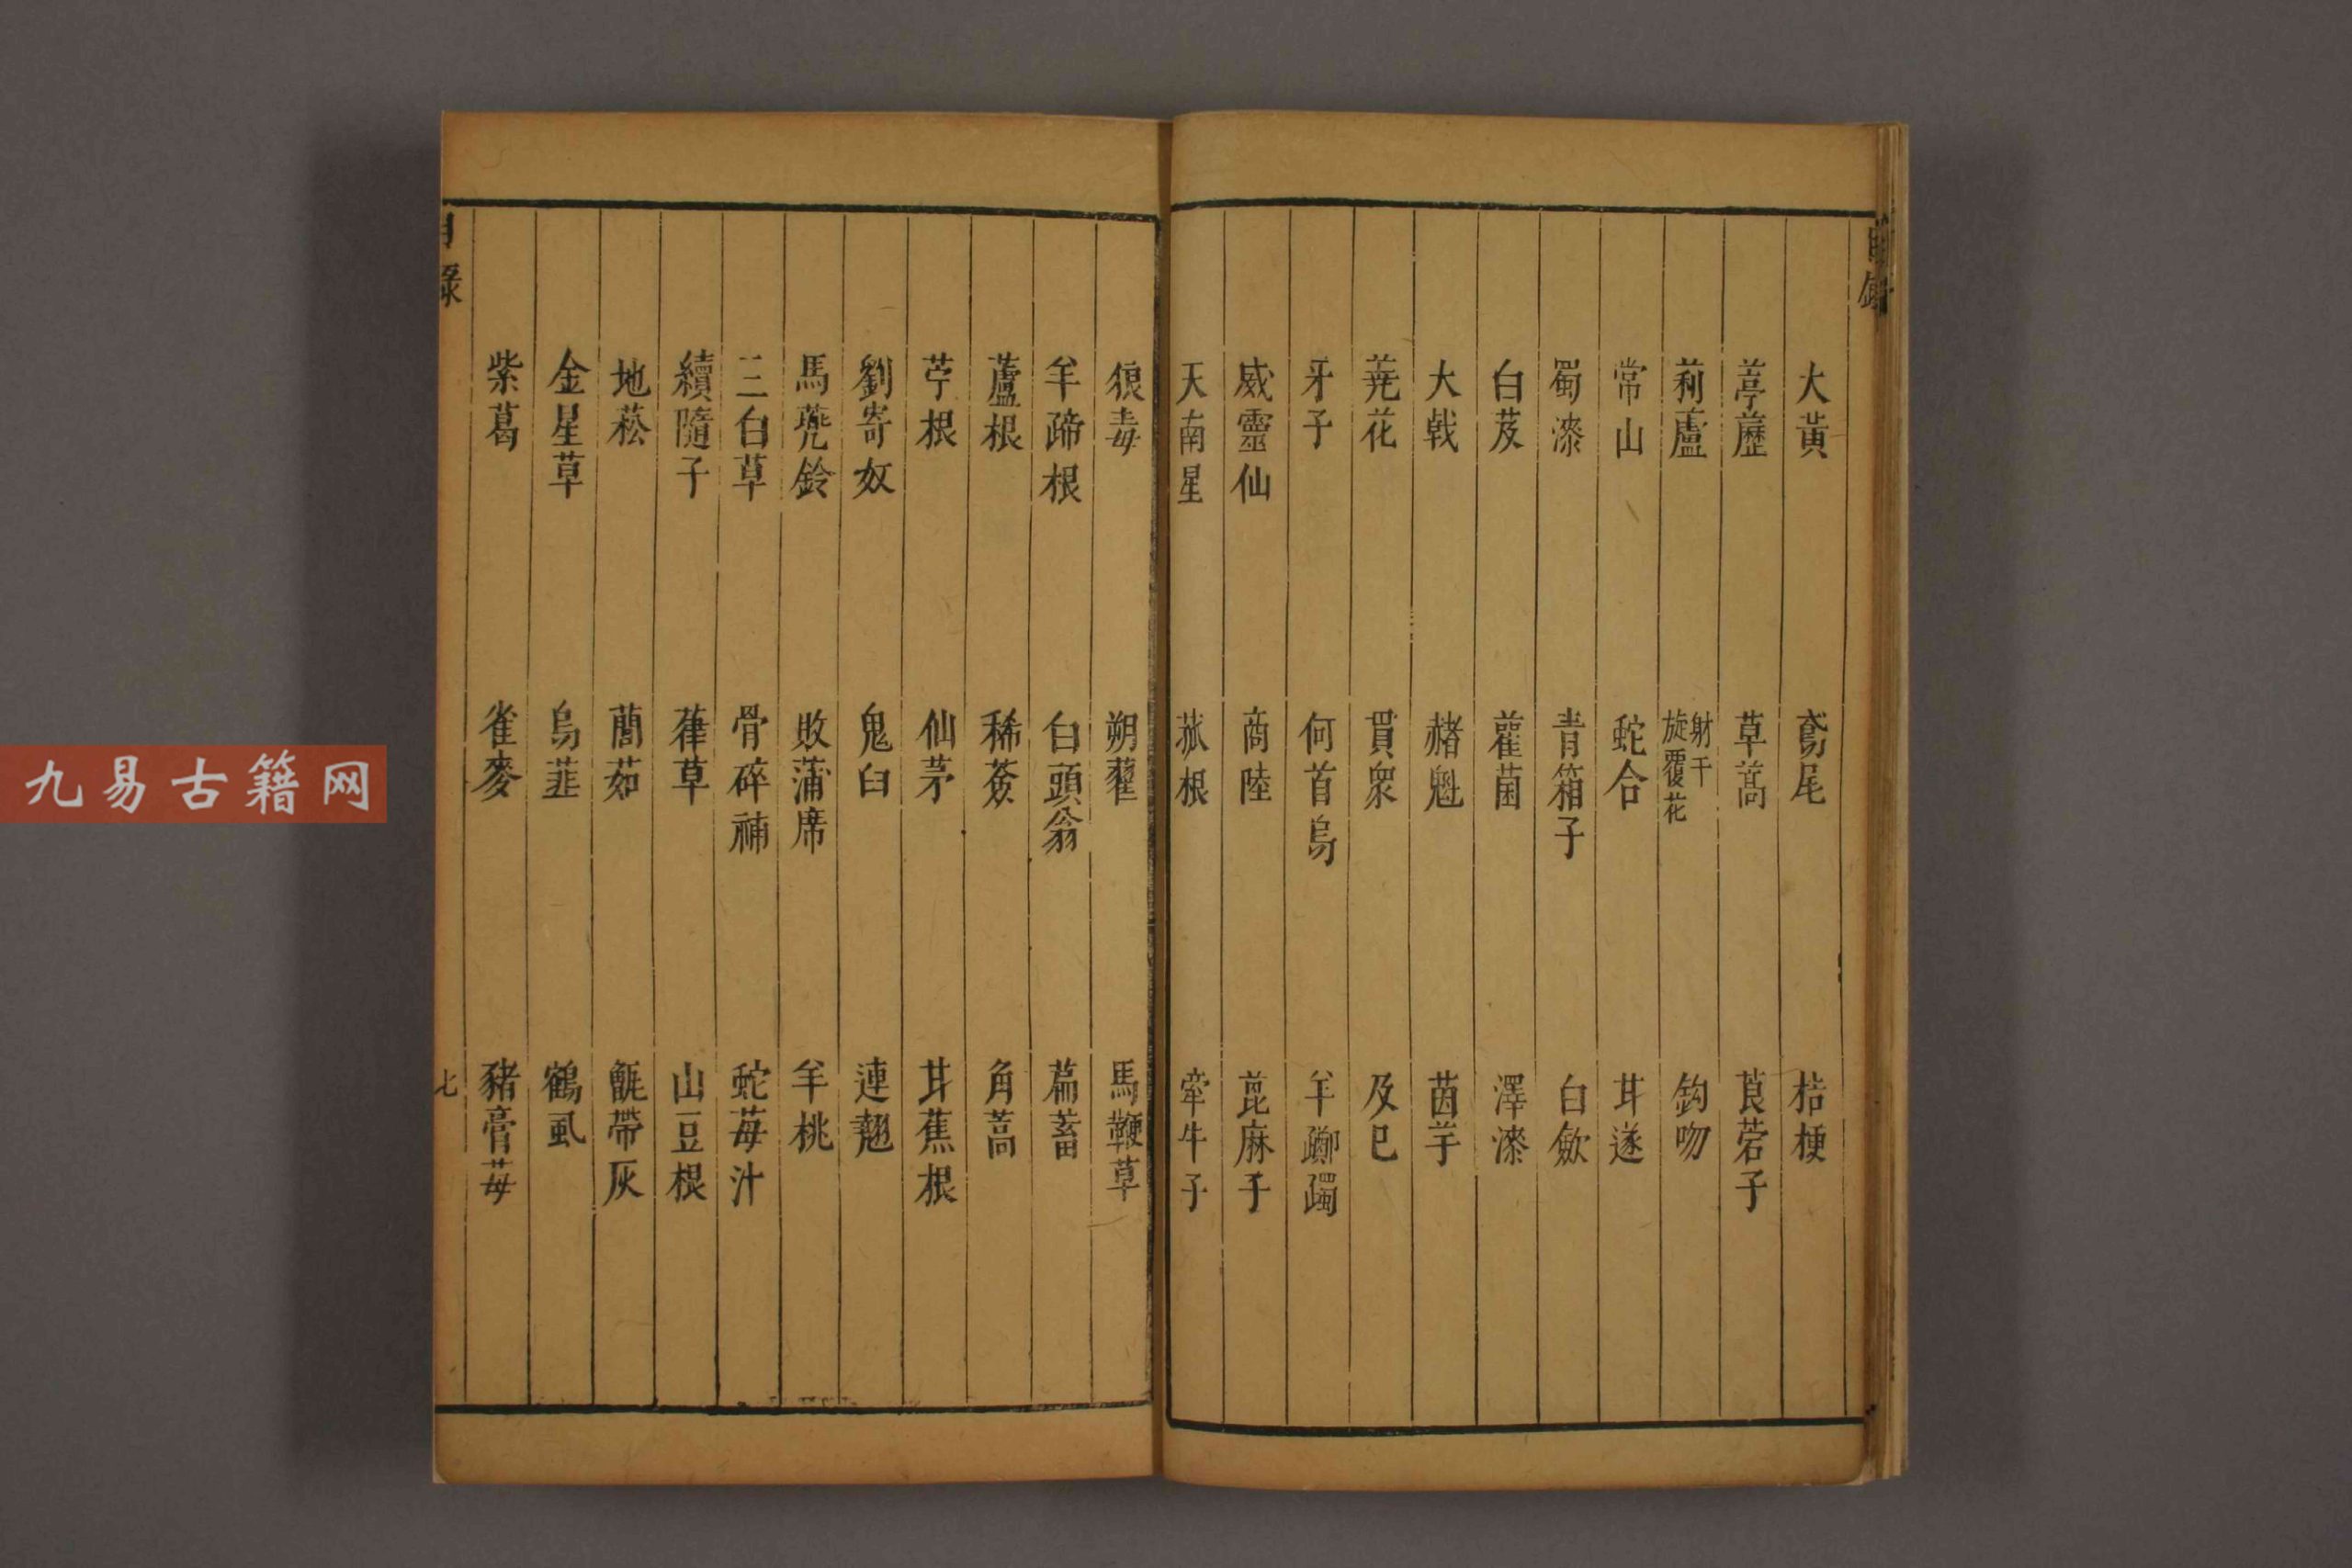 大黃 鳶尾 桔梗
葶藶 草蒿 莨菪子
藜蘆 射干 旋覆花 鈎吻
常山 蛇合 甘遂
蜀漆 青箱子 白歛
白芨 雚菌 澤漆
大戟 赭魁 茵芋
蕘花 貫衆 及已
牙子 何首烏 羊躑躅
威靈仙 商陸 萞麻子
天南星 菰根 牽牛子
狼毒 朔藋 馬鞭草
羊蹄根 白頭翁 萹蓄
蘆根 稀薟 角蒿
苧根 仙茅 甘蕉根
劉寄奴 鬼臼 連翹
馬兠鈴 敗蒲席 羊桃
三白草 骨碎補 蛇莓汁
續隨子 葎草 山豆根
地菘 蕳茹 甑帶灰
金星草 烏韮 鶴虱
紫葛 雀麥 豬膏莓
目錄
七
九易古籍网